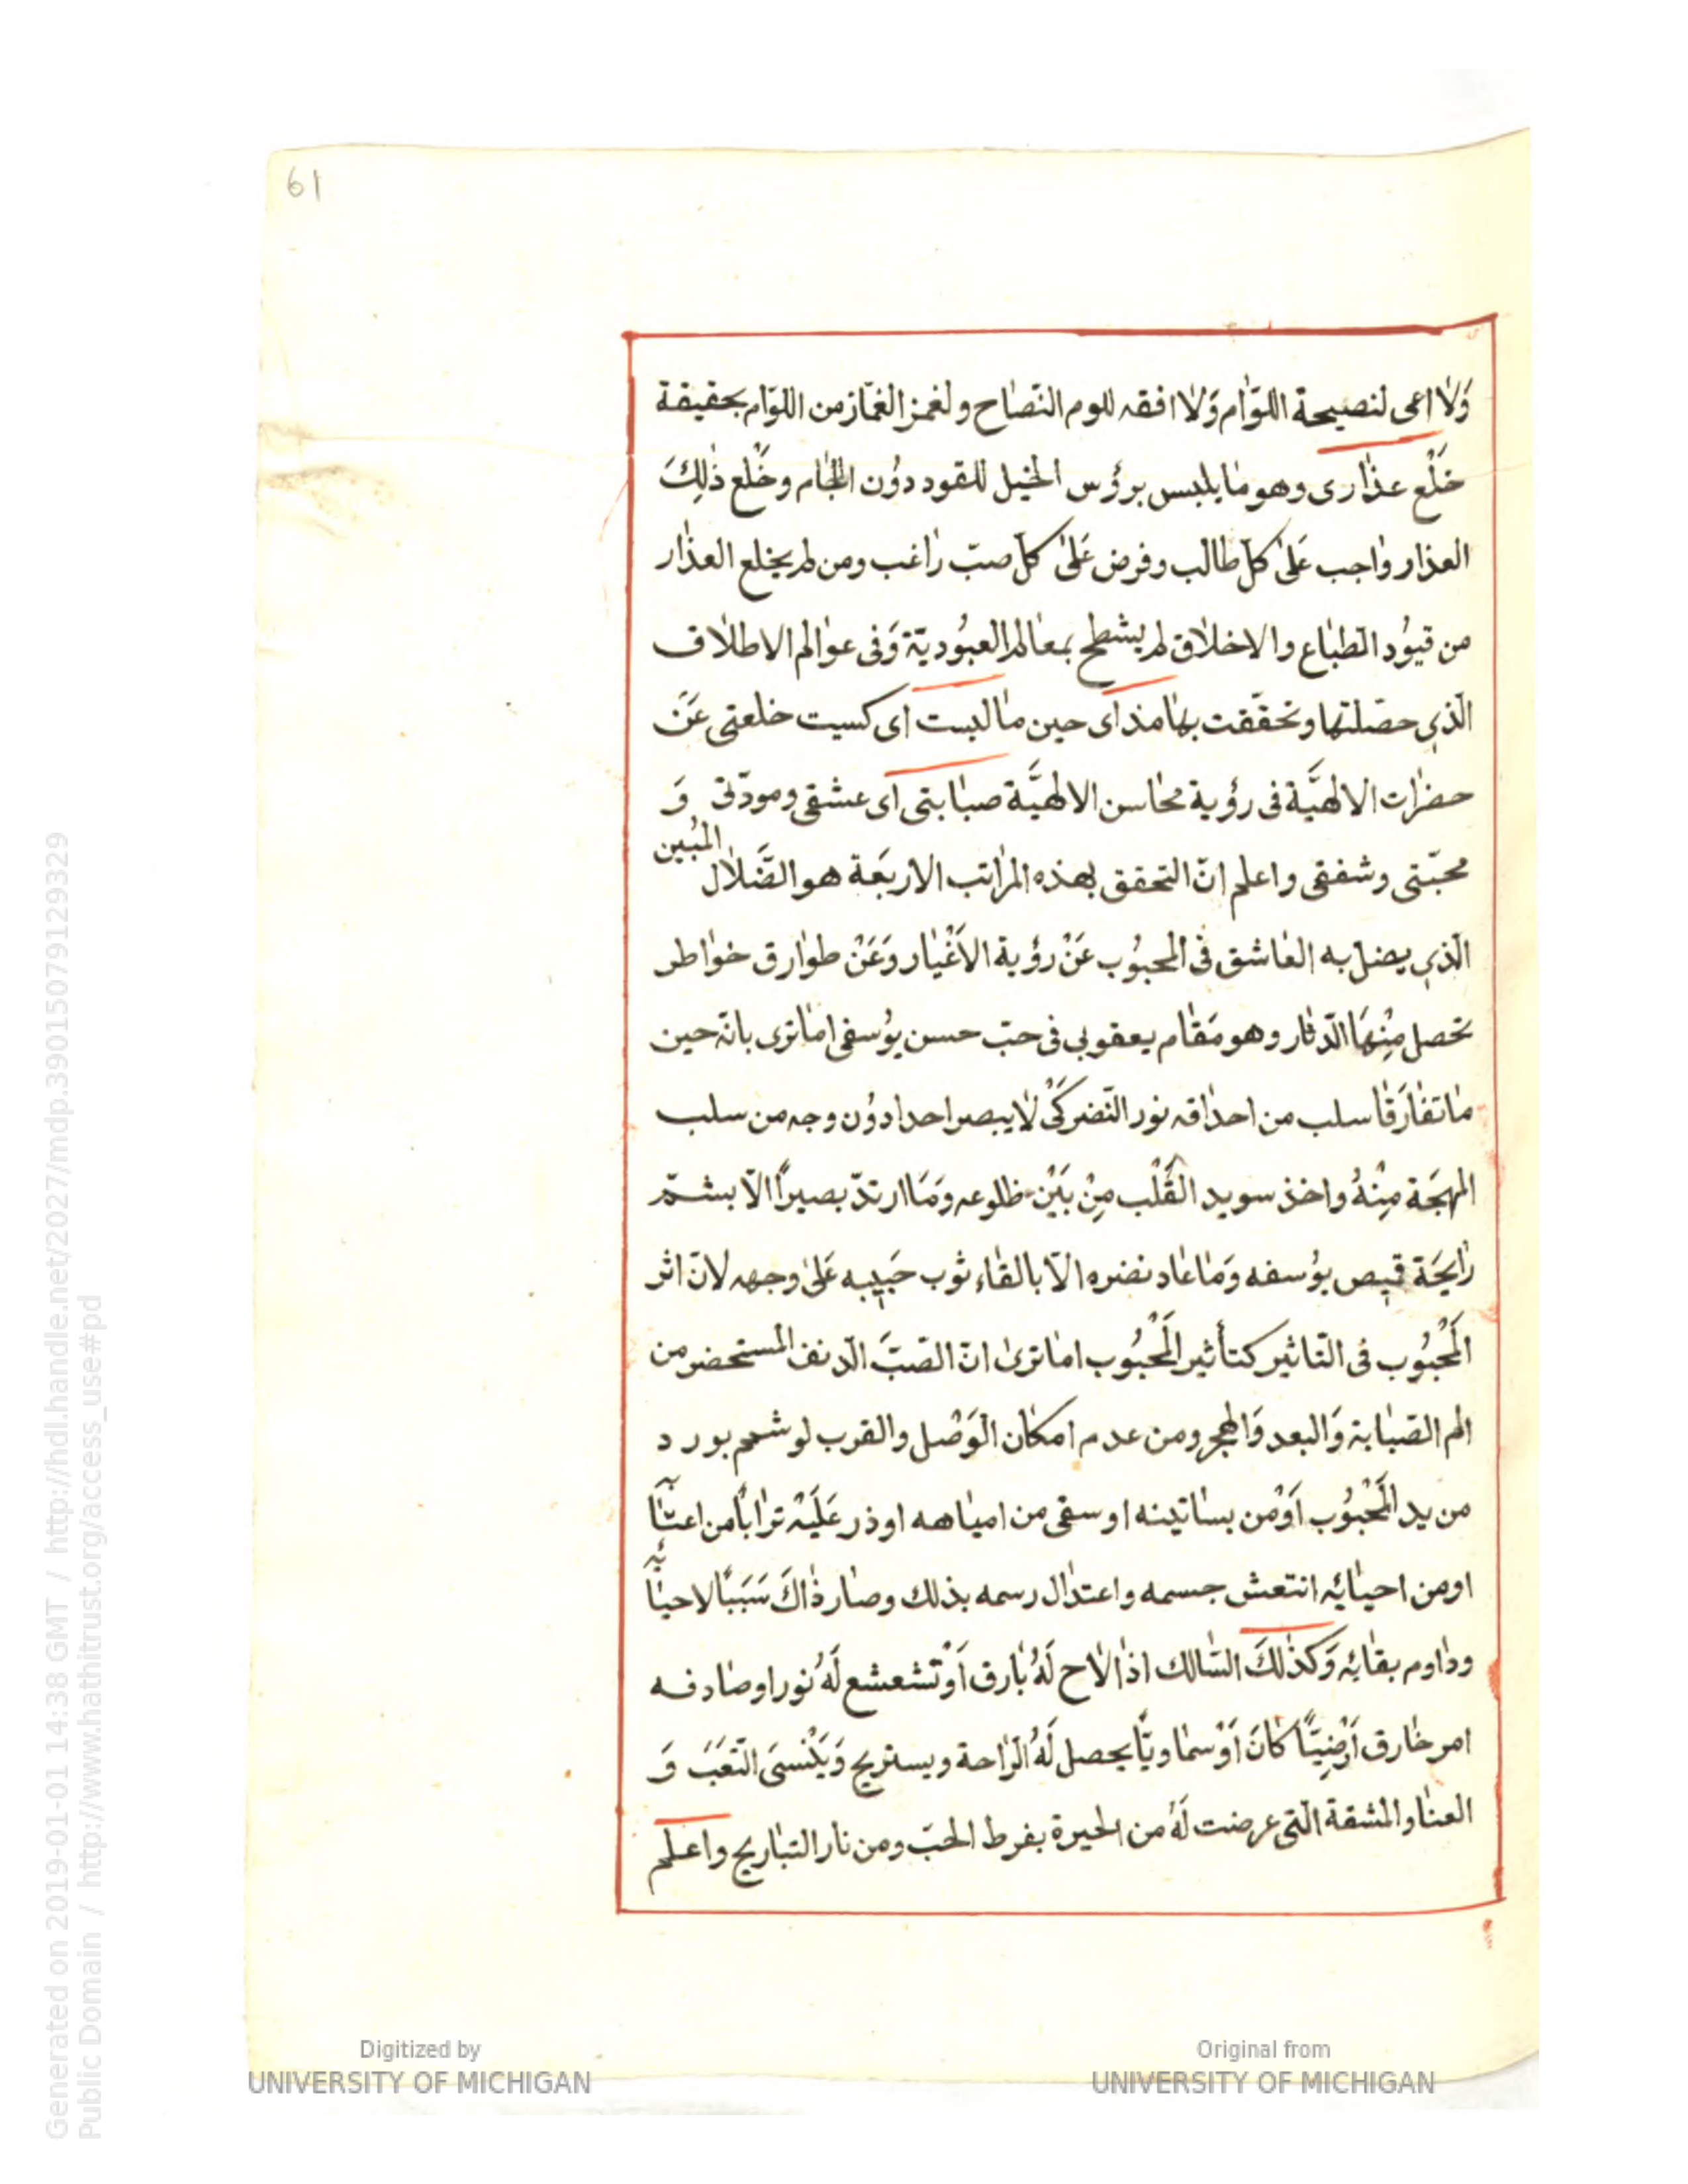 61
وَلٰا اعى لنصيحة اللوّام وَلٰا افقه للوم النّصاح ولغمز الغمّاز من اللوّام بحقيقة
خَلْع عذارى وهو ما يلبس برؤس الخيل للقود دوُن اللجام وخَلع ذٰلِكَ
العذار واجب عَلىٰ كلّ طالب وفرض عَلىٰ كلّ صبّ راغب ومن لم يخلع العذار
من قيوُد الطّباع والاخلاق لم يشطح بمعالم العبوُديّة وَفى عوالم الاطلاق
الّذي حصّلتها وتحقّقت بها مذ اى حين ما لبست اى كسيت خلعتى عَن
حضرات الالهيَّة فى رؤية محاسن الالهيَّة صبابتى اى عشقى ومودّتى وَ
محبّتى وشفقى واعلم انّ التحقق بهذه المراتب الاربَعة هو الضَّلال المُبين
الّذي يضل به العاشق فى المحبوُب عَنْ رؤية الاَغْيار وَعَنْ طوارق خواطر
تحصل مِنْهَا الدّثار وهو مَقام يعقوبي فى حبّ حسن يوُسفى اما ترى بانّه حين
ما تفارَقا سلب من احداقه نور النّضر كَىْ لا يبصر احدا دوُن وجه من سلب
المهجَة مِنْهُ واخذ سويد القَلْب مِنْ بَيْن ظلوعه وَمَا ارتدّ بصيراً الاّ بشمّ
رايحَة قميص يوُسفه وَمَا عاد نضره الاّ بالقاء ثوب حَبيبه عَلىٰ وجهه لانّ اثر
المَحْبُوب فى التّاثير كتأثير المَحْبُوب اما ترىٰ انّ الصّبَّ الدّنف المستحضر من
الم الصّبابة وَالبعد وَالهجر ومن عدم امكان الوَصْل والقرب لو شمم بورد
من يد المَحْبُوب اَوْمن بساتينه اوسقى من امياهه اوذر عَلَيْه تراباً من اعتابه
اومن احيائه انتعش جسمه واعتدال رسمه بذلك وصار ذاكَ سَبَبًا لاحيائه
وداوم بقائه وَكذٰلكَ السّالك اذا لاٰح لَهُ بارق اَوْتشعشع لَهُ نور اوصادفه
امر خارق اَرْضِيّاً كانَ اَوْسماويّاً يحصل لَهُ الرّاحة ويستريح وَيَنْسىَ التّعَبَ وَ
العناوالمشقة الّتى عرضت لَهُ من الحيرة بفرط الحبّ ومن نار التباريح واعلم
Generated on 2019-01-01 14:38 GMT / http://hdl.handle.net/2027/mdp.39015079129329
Public Domain / http://www.hathitrust.org/access_use#pd
Digitized by
UNIVERSITY OF MICHIGAN
Original from
UNIVERSITY OF MICHIGAN